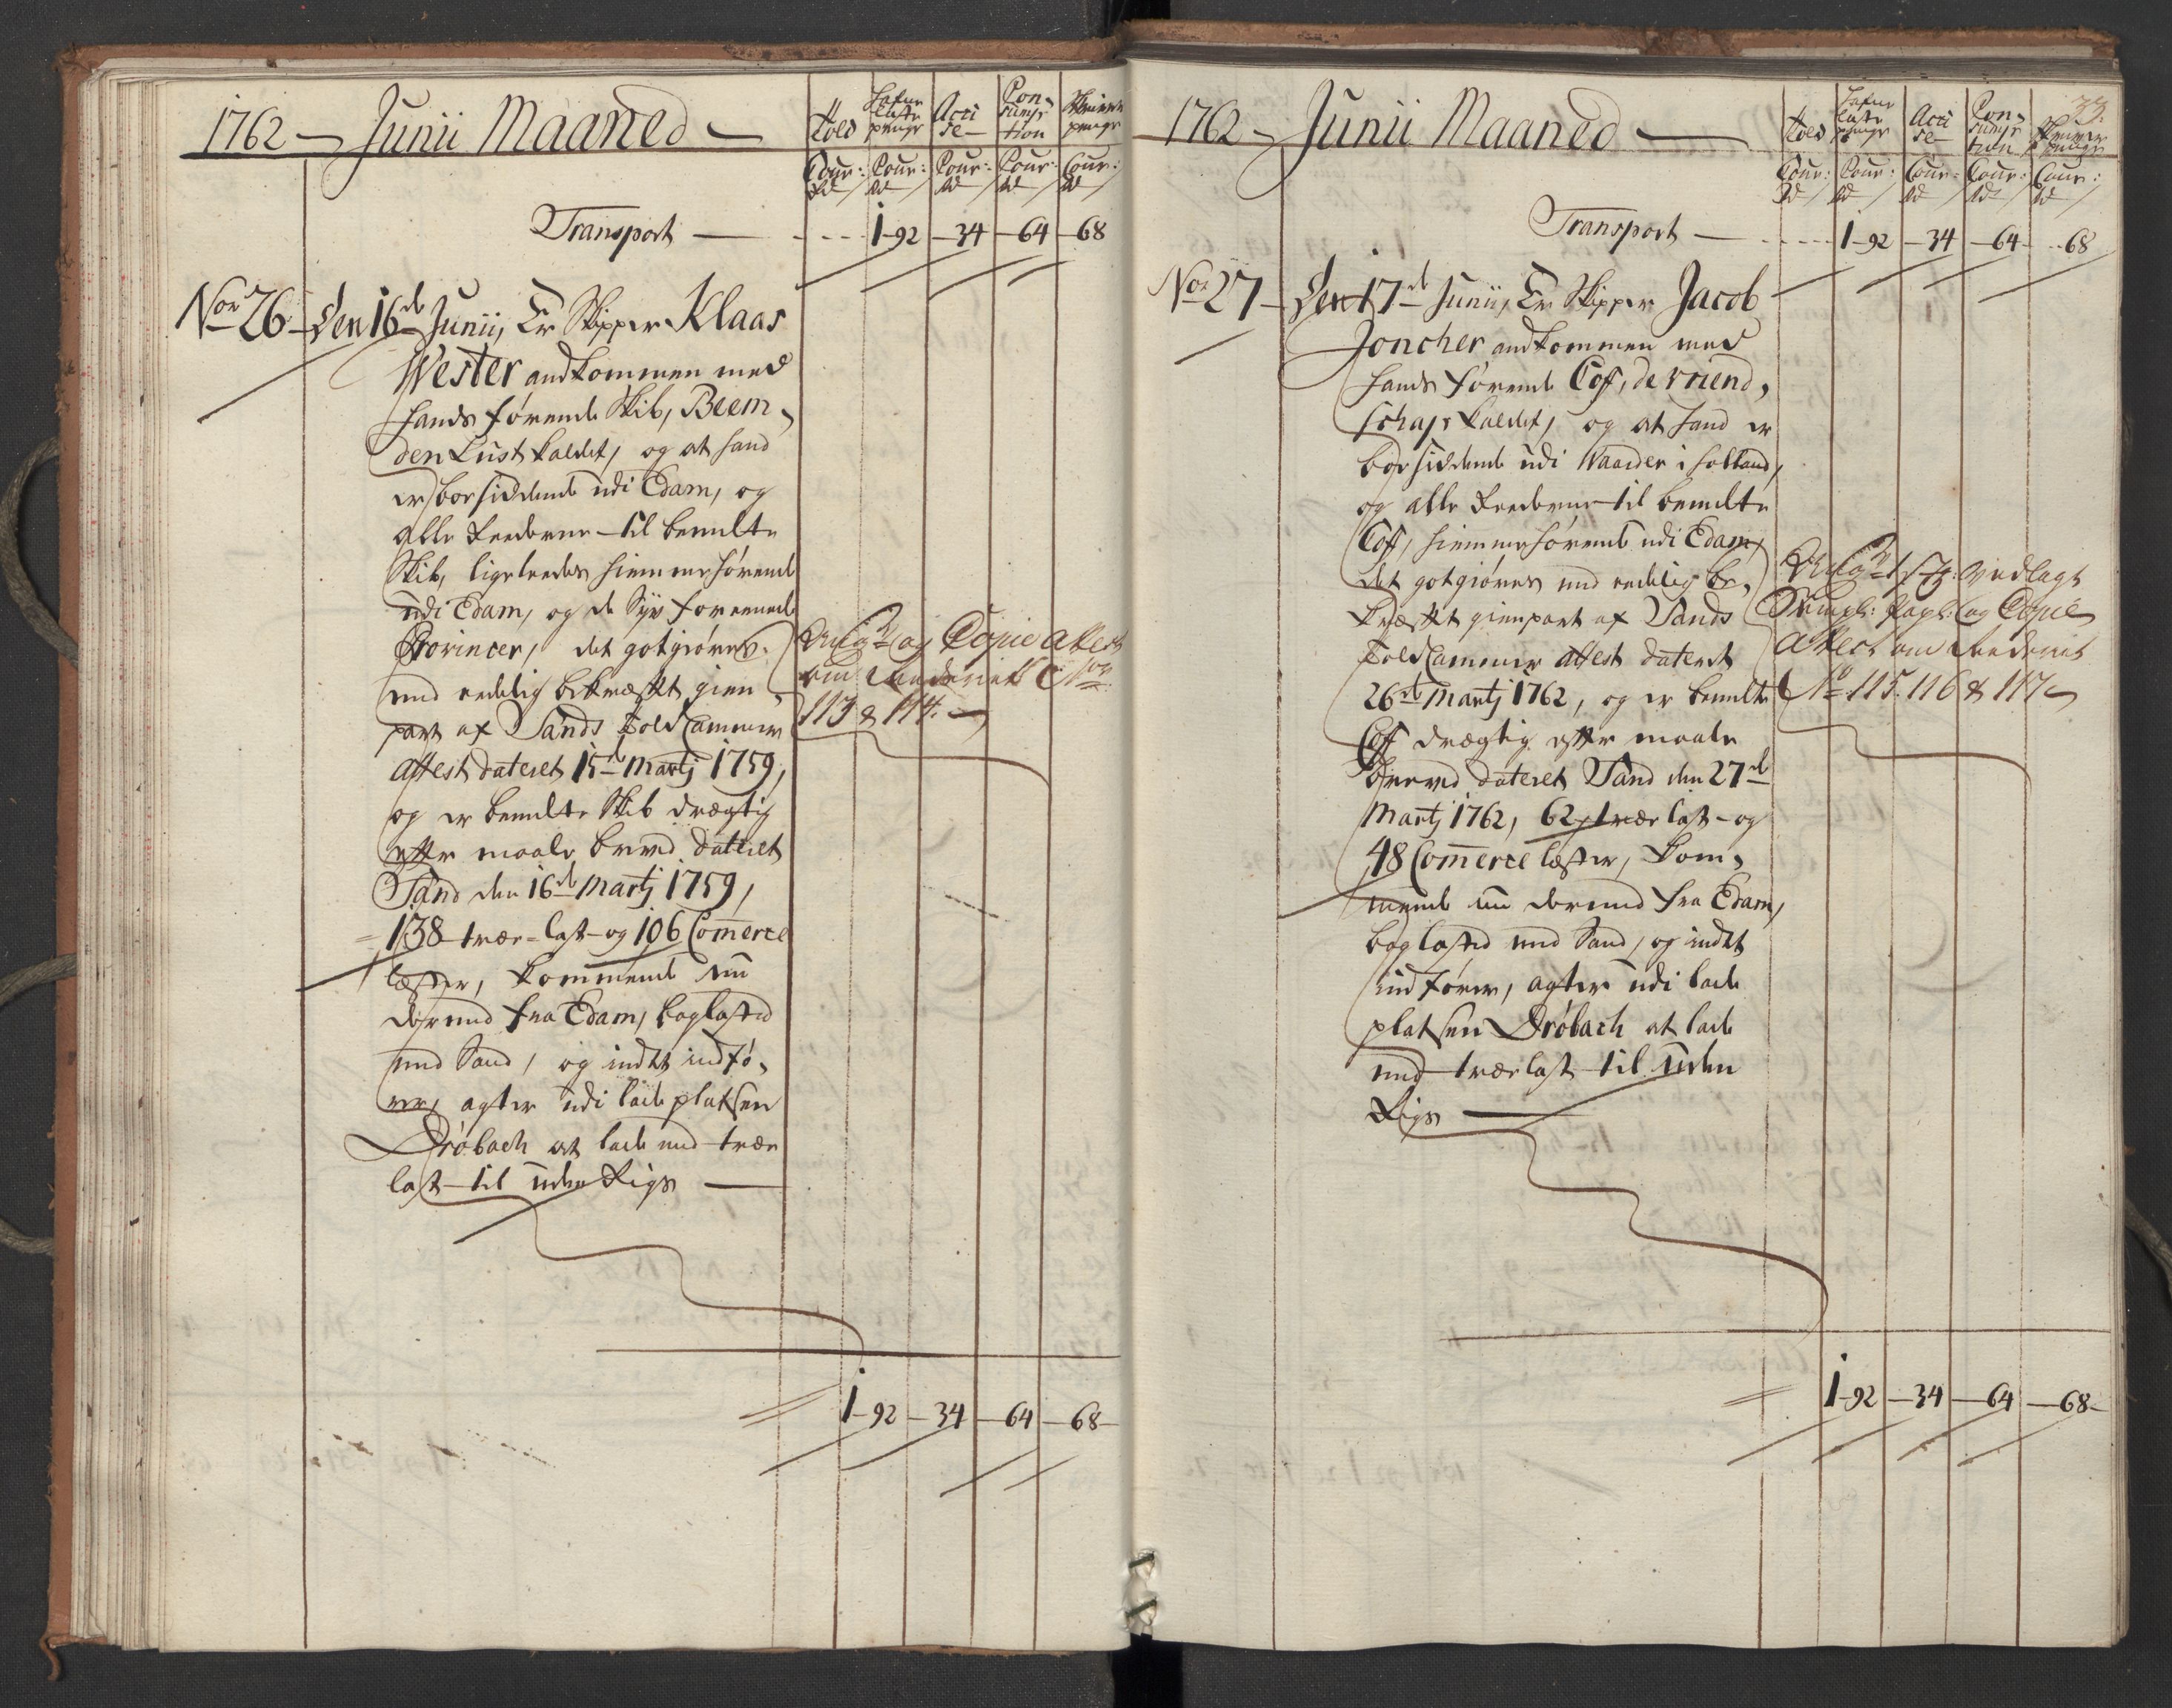 1762 — Junii Maaned —
Told
Hafne Laste penge
Acci se
Con- sump tion
Skriver penge
Cour: Rd
Cour: Rd
Cour: Rd
Cour: Rd
Cour: Rd
Transport — 1-92 -34 -64 -68
Nor 26 - Den 16de Junii, Er Skipper Klaas
Wester andkommen med
hands førende Skib, Beem-
den Lust kaldet, og at hand
er borsiddende udi Edam, og
alle Reederne til bemelte
Skib, ligeleedes hiemmehørende
udi Edam, og de Syv foreenede
Provincer, det gotgiøres
med redelig bekræftet gien-
part af Sands Told Cammer
Attest dateret 15de Martj 1759,
og er bemelte Skib drægtig
efter maale breved dateret
Sand den 16de Martj 1759,
138 træ-last og 106 Commerce
læster, kommende nu
dermed fra Edam, baglasted
med Sand, og indtet indfø-
rer, agter udi lade pladsen
Drøbach at lade med træe
last til uden Rigs —
og Copie Attest
om Rederiet Nor
113 & 114.
1-92 -34 -64 -68
33.
1762 - Junii Maaned —
Told
Hafne Laste penge
Acci se
Con- sump tion
Skriver penge
Cour: Rd
Cour: Rd
Cour: Rd
Cour: Rd
Cour: Rd
Transport — 1-92 -34 -64 -68
Nor 27 - Den 17de Junii, Er Skipper Jacob
Joncher andkommen med
hands førende Coff, de Vriend-
schaps kaldet, og at hand er
borsiddende udi Waarder i Holland,
og alle Reederne til bemelte
Coff, hiemmehørende udi Edam,
det gotgiøres med redelig be-
kræftet gienpart af Sands
Told Cammer Attest dateret
26de Martj 1762, og er bemelte
Coff drægtig efter maale
breved dateret Sand den 27de
Martj 1762, 62 træe last og
48 Commerce læster, kom-
mende nu dermed fra Edam,
baglasted med Sand, og indtet
indfører, agter udi lade
platsen Drøbach at lade
med træelast til uden
Rigs —
vedlagt
og Copie
Attest om Rederiet
No 115. 116 & 117
1-92 -34 -64 -68